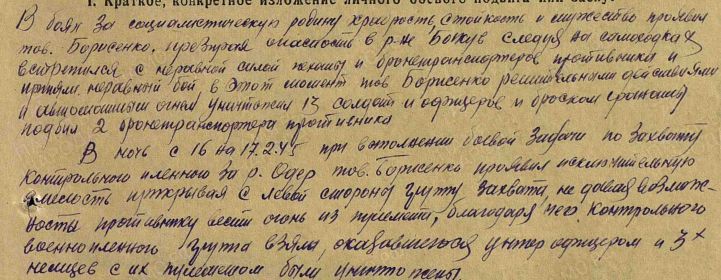 I. Краткое, конкретное изложение личного боевого подвига или заслуг
В боях за социалистическую родину храбрость, стойкость и мужество проявил
тов. Борисенко, презирая опасность в р-не следуя на самоходках
встретился с неравной силой пехоты и бронетранспортеров противника и
приняли неравный бой, в этот момент тов. Борисенко решительными действиями
и автоматным огнем уничтожил 13 солдат и офицеров и броском гранаты
подбил 2 бронетранспортера противника
В ночь с 16 на 17.2.45 при выполнении боевой задачи по захвату
контрольного пленного за р. Одер тов. Борисенко проявил исключительную
смелость прикрывая с левой стороны группу захвата не давая возмож-
ность противнику вести огонь из пулемета, благодаря чего контрольного
военнопленного группа взяла, оказавшегося унтер офицером и 3х
немцев с их пулеметом были уничтожены.